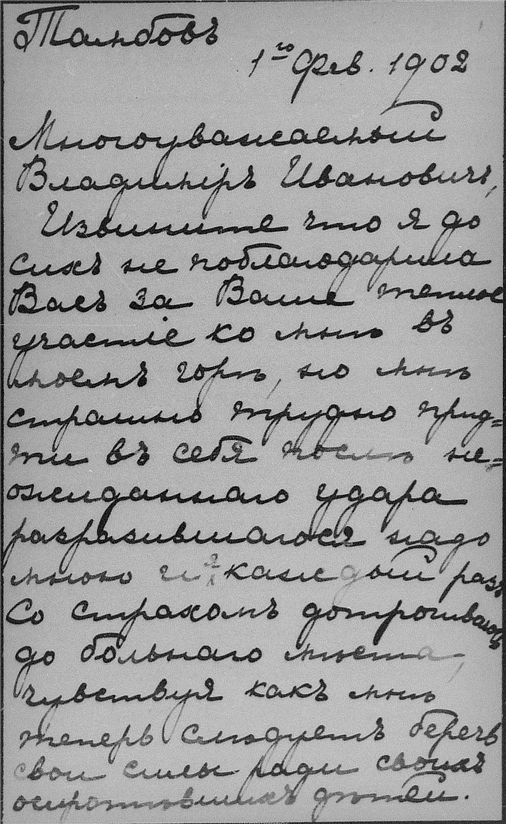 Тамбовъ
1го Фев. 1902
Многоуважаемый
Владиміръ Ивановичъ,
Извините что я до
сихъ не поблагодарила
Васъ за Ваше теплое
участіе ко мнѣ въ
моемъ горѣ, но мнѣ
страшно трудно прид=
ти въ себя послѣ не=
ожиданнаго удара
разразившагося надо
мною и я каждый разъ
со страхомъ дотрогиваюсь
до больнаго мѣста,
чувствуя какъ мнѣ
теперь слѣдуетъ беречь
свои силы ради своихъ
осиротѣвшихъ дѣтей.